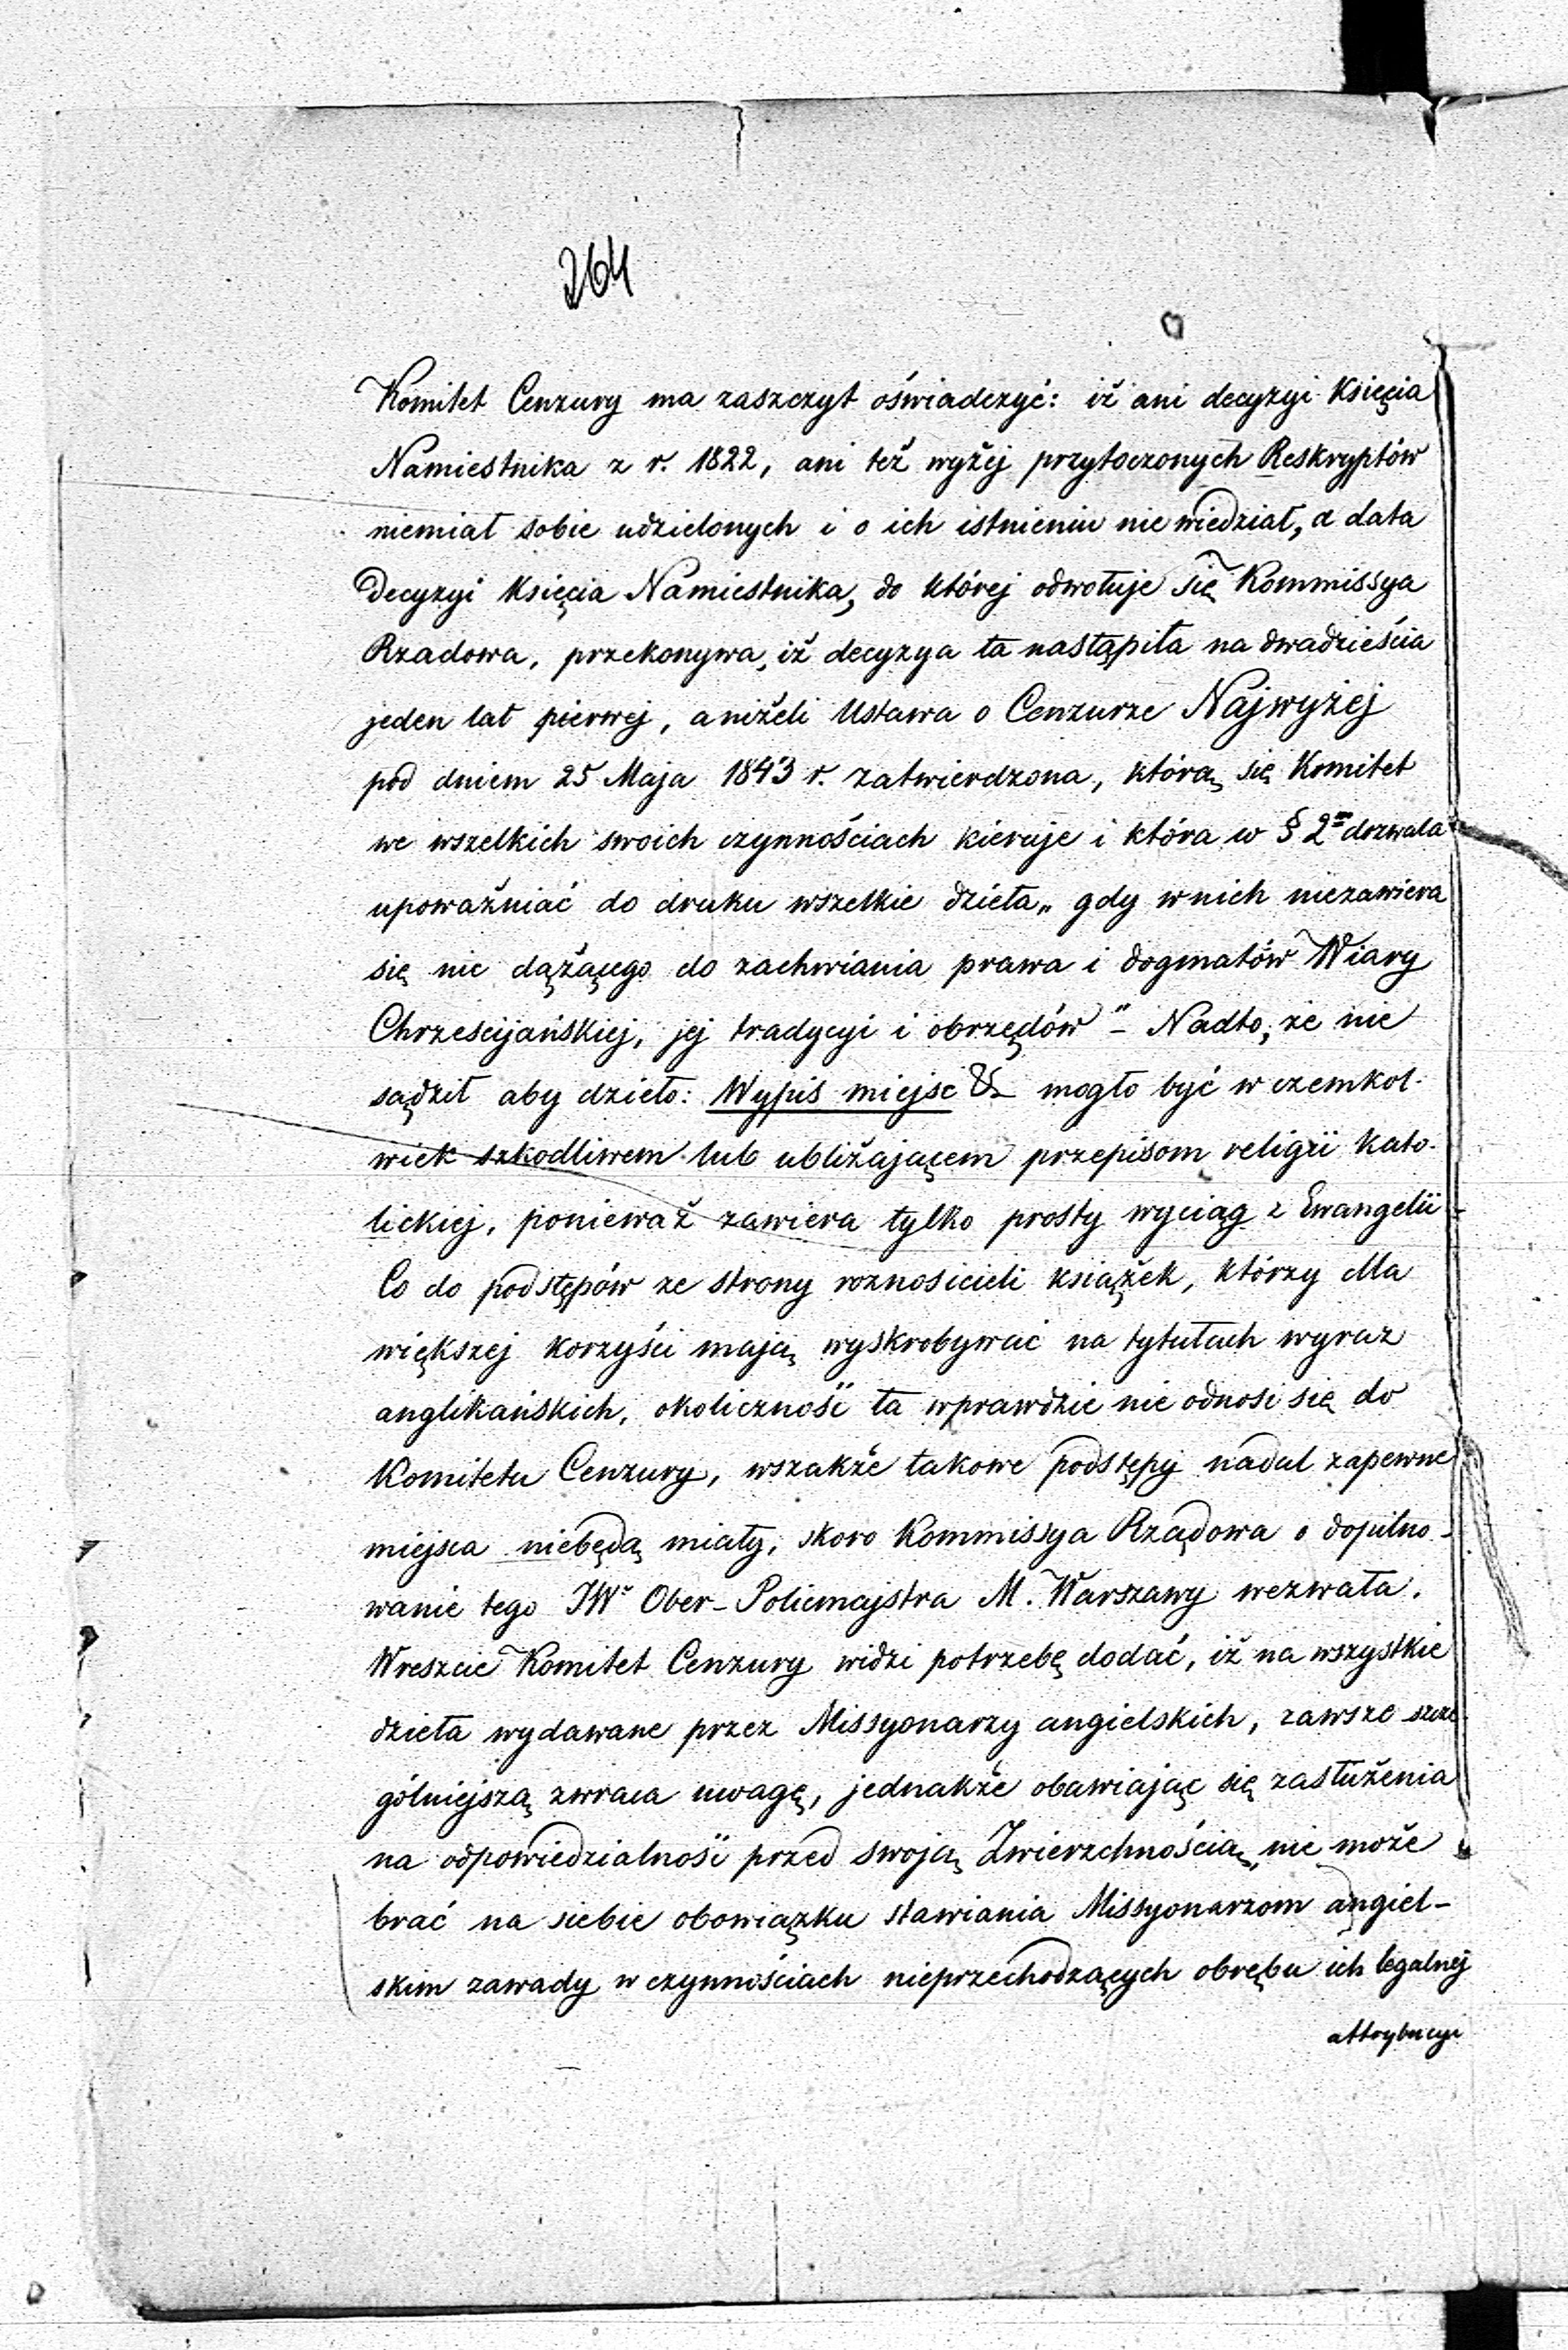 264
Komitet Cenzury ma zaszczyt oświadczyć: iż ani decyzyi Księcia
Namiestnika z r. 1822, ani też wyżej przytoczonych Reskryptów
niemiał sobie udzielonych i o ich istnieniu nie wiedział, a data
Decyzyi Księcia Namiestnika, do której odwołuje się Kommissya
Rządowa, przekonywa, iż decyzya ta nastąpiła na dwadzieścia
jeden lat pierwej, aniżeli Ustawa o Cenzurze Najwyżej
pod dniem 25 Maja 1843 r. zatwierdzona, którą się Komitet
we wszelkich swoich czynnościach kieruje i która w § 2m dozwala
upoważniać do druku wszelkie dzieła „gdy w nich niezawiera
się nic dążącego do zachwiania prawa i dogmatów Wiary
Chrześcijańskiej, jej tradycyi i obrzędów" - Nadto, że nie
sądził aby dzieło: Wypis miejsc & mogło być w czemkol-
wiek szkodliwem lub ubliżającem przepisom religii kato-
lickiej, ponieważ zawiera tylko prosty wyciąg z Ewangelii -
Co do podstępów ze strony roznosicieli książek, którzy dla
większej korzyści mają wyskrobywać na tytułach wyraz
anglikańskich, okoliczność ta wprawdzie nie odnosi się do
Komitetu Cenzury, wszakże takowe podstępy nadal zapewne
miejsca niebędą miały, skoro Kommissya Rządowa o dopilno-
wanie tego JWo Ober-Policmajstra M. Warszawy wezwała.
Wreszcie Komitet Cenzury widzi potrzebę dodać, iż na wszystkie
dzieła wydawane przez Missyonarzy angielskich, zawsze szcze-
gólniejszą zwraca uwagę, jednakże obawiając się zasłużenia
na odpowiedzialność przed swoją Zwierzchnością, nie może
brać na siebie obowiązku stawiania Missyonarzom angiel-
skim zawady w czynnościach nieprzechodzących obrębu ich legalnej
attrybucyi